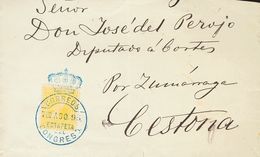 Señor
Don José del Perojo
Diputado a Cortes
Por Zumárraga
Cestona
CORREOS
AGO
ESTAFETA
DEL
CONGRESO